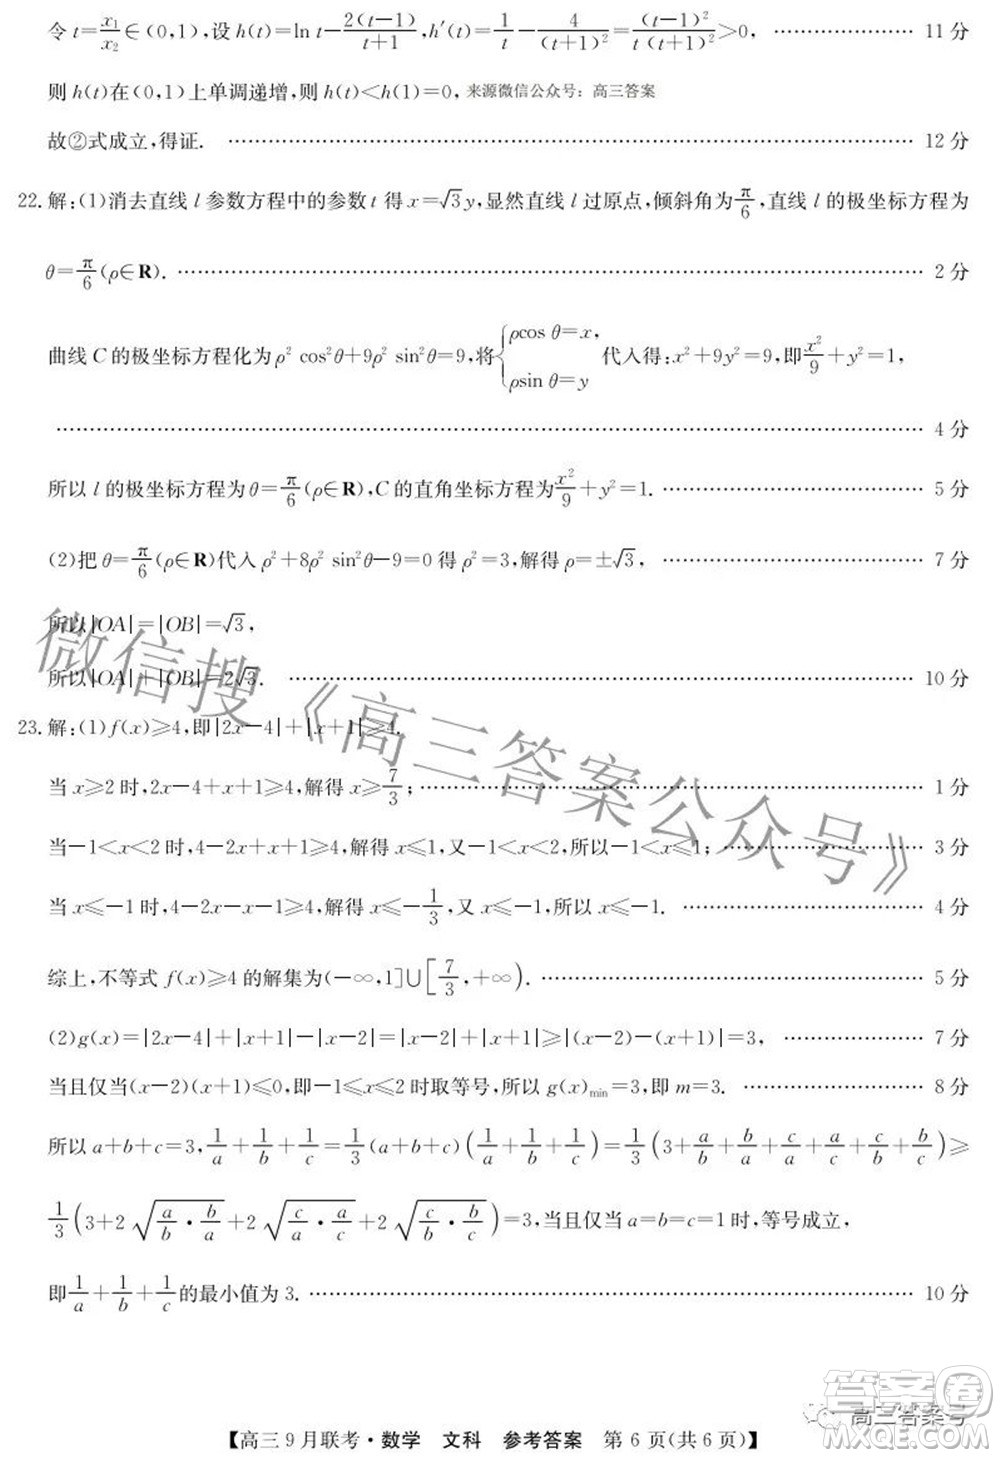 令t=x₁/x₂∈(0,1),设h(t)=ln t-2(t-1)/(t+1),h′(t)=1/t-4/(t+1)²=(t-1)²/t(t+1)²>0, ………………… 11分
则h(t)在(0,1)上单调递增,则h(t)<h(1)=0, 来源微信公众号：高三答案
故②式成立,得证. ………………… 12分
22.解:(1)消去直线l参数方程中的参数t得x=√3y,显然直线l过原点,倾斜角为π/6,直线l的极坐标方程为
θ=π/6(ρ∈R). ………………… 2分
曲线C的极坐标方程化为ρ² cos²θ+9ρ² sin²θ=9,将{ρcos θ=x, ρsin θ=y 代入得:x²+9y²=9,即x²/9+y²=1,
………………… 4分
所以l的极坐标方程为θ=π/6(ρ∈R),C的直角坐标方程为x²/9+y²=1. ………………… 5分
(2)把θ=π/6(ρ∈R)代入ρ²+8ρ² sin²θ-9=0得ρ²=3,解得ρ=±√3, ………………… 7分
所以|OA|=|OB|=√3,
所以|OA|+|OB|=2√3. ………………… 10分
23.解:(1)f(x)≥4,即|2x-4|+|x+1|≥4.
当x≥2时,2x-4+x+1≥4,解得x≥7/3; ………………… 1分
当-1<x<2时,4-2x+x+1≥4,解得x≤1,又-1<x<2,所以-1<x≤1; ………………… 3分
当x≤-1时,4-2x-x-1≥4,解得x≤-1/3,又x≤-1,所以x≤-1. ………………… 4分
综上,不等式f(x)≥4的解集为(-∞,1]∪[7/3,+∞). ………………… 5分
(2)g(x)=|2x-4|+|x+1|-|x-2|=|x-2|+|x+1|≥|(x-2)-(x+1)|=3, ………………… 7分
当且仅当(x-2)(x+1)≤0,即-1≤x≤2时取等号,所以g(x)min=3,即m=3. ………………… 8分
所以a+b+c=3,1/a+1/b+1/c=1/3(a+b+c)(1/a+1/b+1/c)=1/3(3+a/b+b/a+c/a+a/c+c/b+b/c)≥
1/3(3+2√(a/b·b/a)+2√(c/a·a/c)+2√(c/b·b/c))=3,当且仅当a=b=c=1时,等号成立,
即1/a+1/b+1/c的最小值为3. ………………… 10分
微信搜《高三答案公众号》
高三答案号
答案卷
MXQE.COM
【高三9月联考·数学 文科 参考答案 第6页(共6页)】